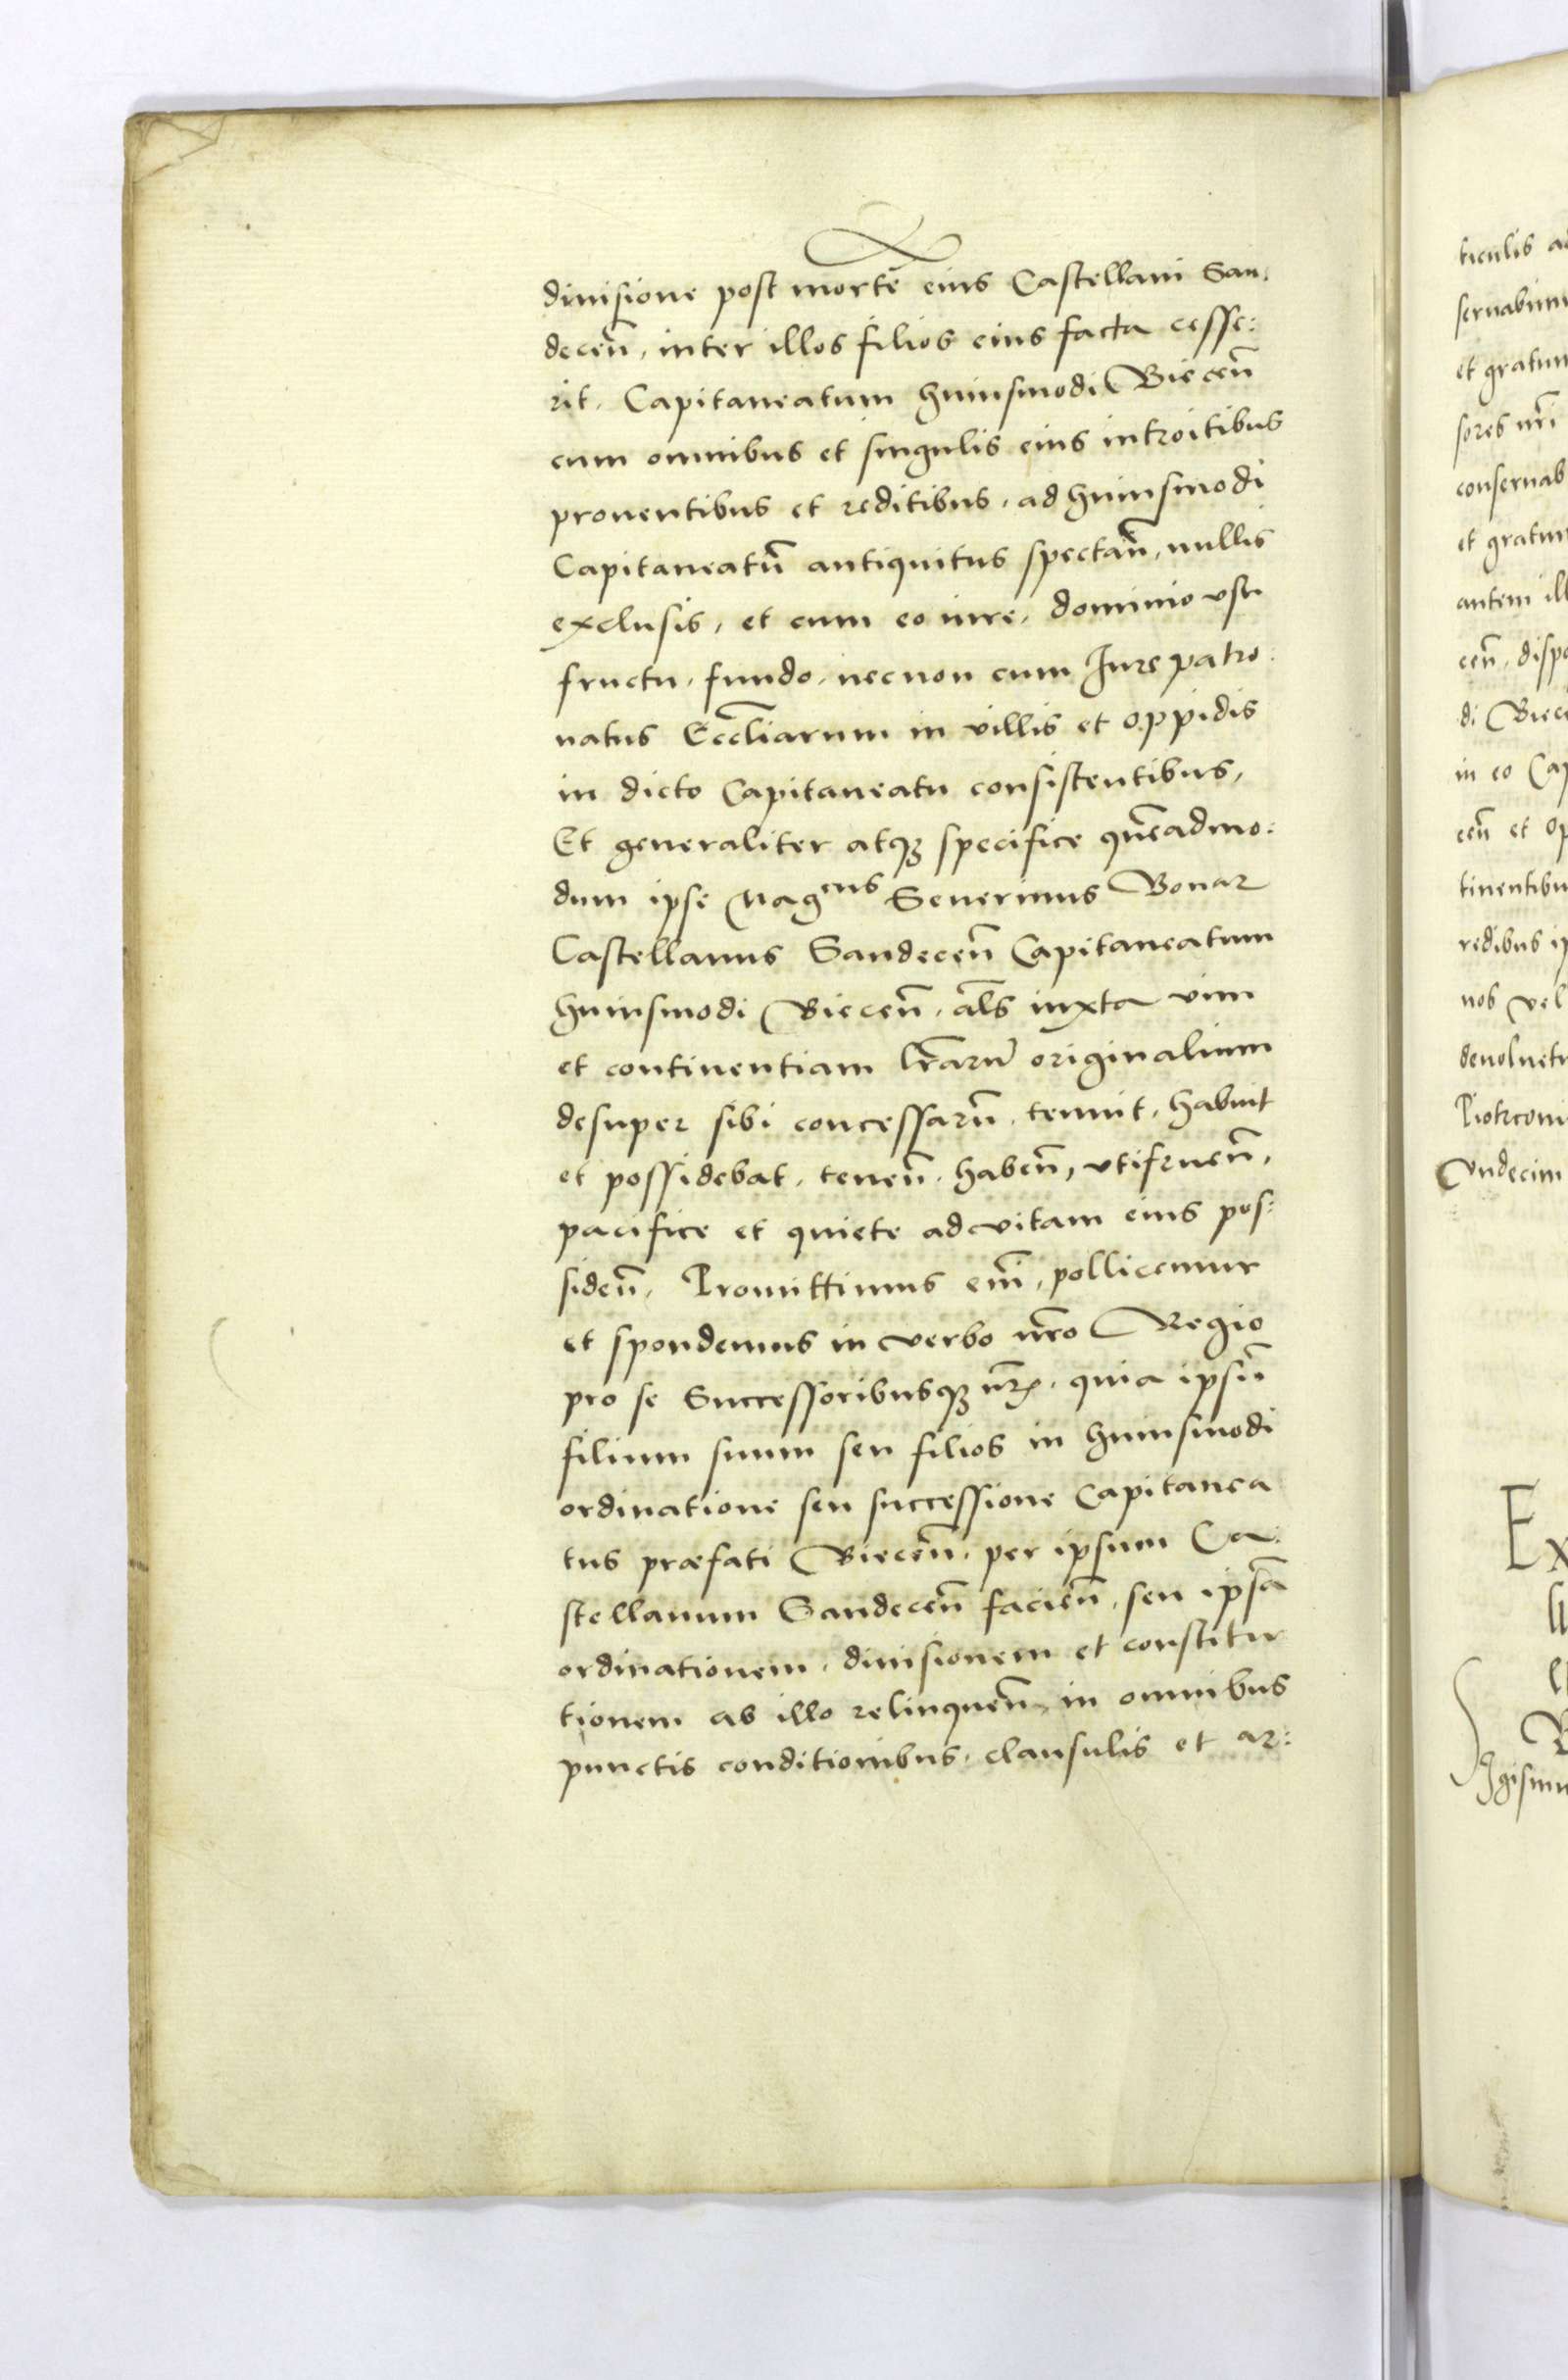 diuisione post mortē eius Castellani San:
deceñ, inter illos filios eius facta cesse:
rit. Capitaneatum huiusmodi Bieceñ
cum omnibus et singulis eius introitibus
prouentibus et reditibus, ad huiusmodi
Capitaneatū antiquitus spectañ, nullis
exclusis, et cum eo iure, dominio vsu
fructu, fundo, necnon cum Iure patro:
natus Eccl̃iarum in villis et oppidis
in dicto Capitaneatu consistentibus,
Et generaliter atqꝫ specifice quēadmo:
dum ipse Magcus Seuerinus Bonar
Castellanus Sandeceñ Capitaneatum
huiusmodi Bieceñ, al̃s iuxta vim
et continentiam l̃rarū originalium
desuper sibi concessarū, tenuit, habuit
et possidebat, teneñ, habeñ, vtifrueñ,
pacifice et quiete ad vitam eius pos:
sideñ, Promittimus em̄, pollicemur
et spondemus in verbo nr̃o Regio
pro se Successoribusqꝫ nr̃is, quia ipsū
filium suum seu filios in huiusmodi
ordinatione seu successione Capitanea
tus præfati Bieceñ, per ipsum Ca:
stellanum Sandeceñ facieñ, seu ipsā
ordinationem, diuisionem et constitu
tionem ab illo relinqueñ, in omnibus
punctis conditionibus, clausulis et ar:
ticulis
seruabim
et gratum
sores nr̃i
conseruab
et gratum
autem ill
ceñ, disp
di Biec
in eo Cap
ceñ et op
tinentibu
redibus ip
nos vel
deuoluet
Piotrcou
Vndecim
Ex
gismu